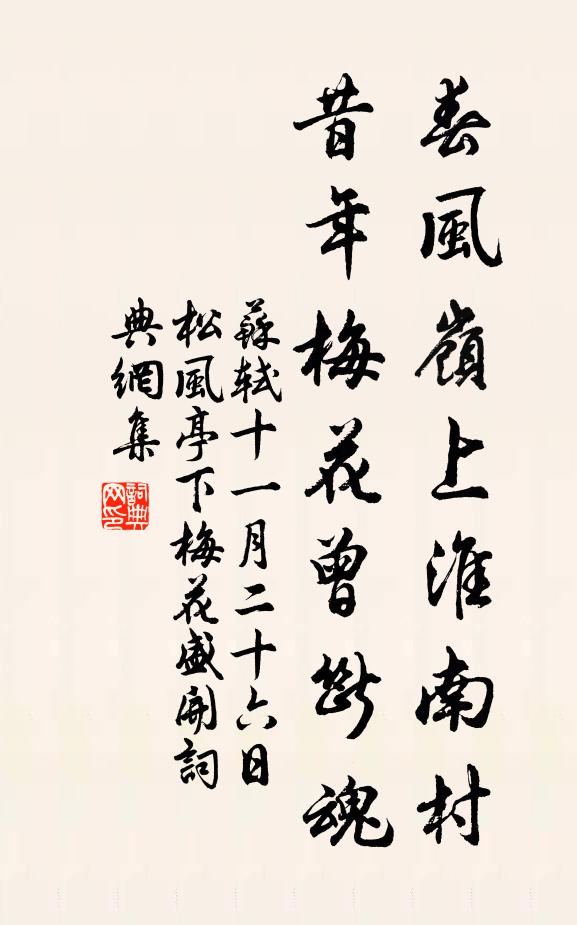 春風嶺上淮南村
昔年梅花曾斷魂
蘇軾十一月二十六日
松風亭下梅花盛開詞
典網集
詞典網印